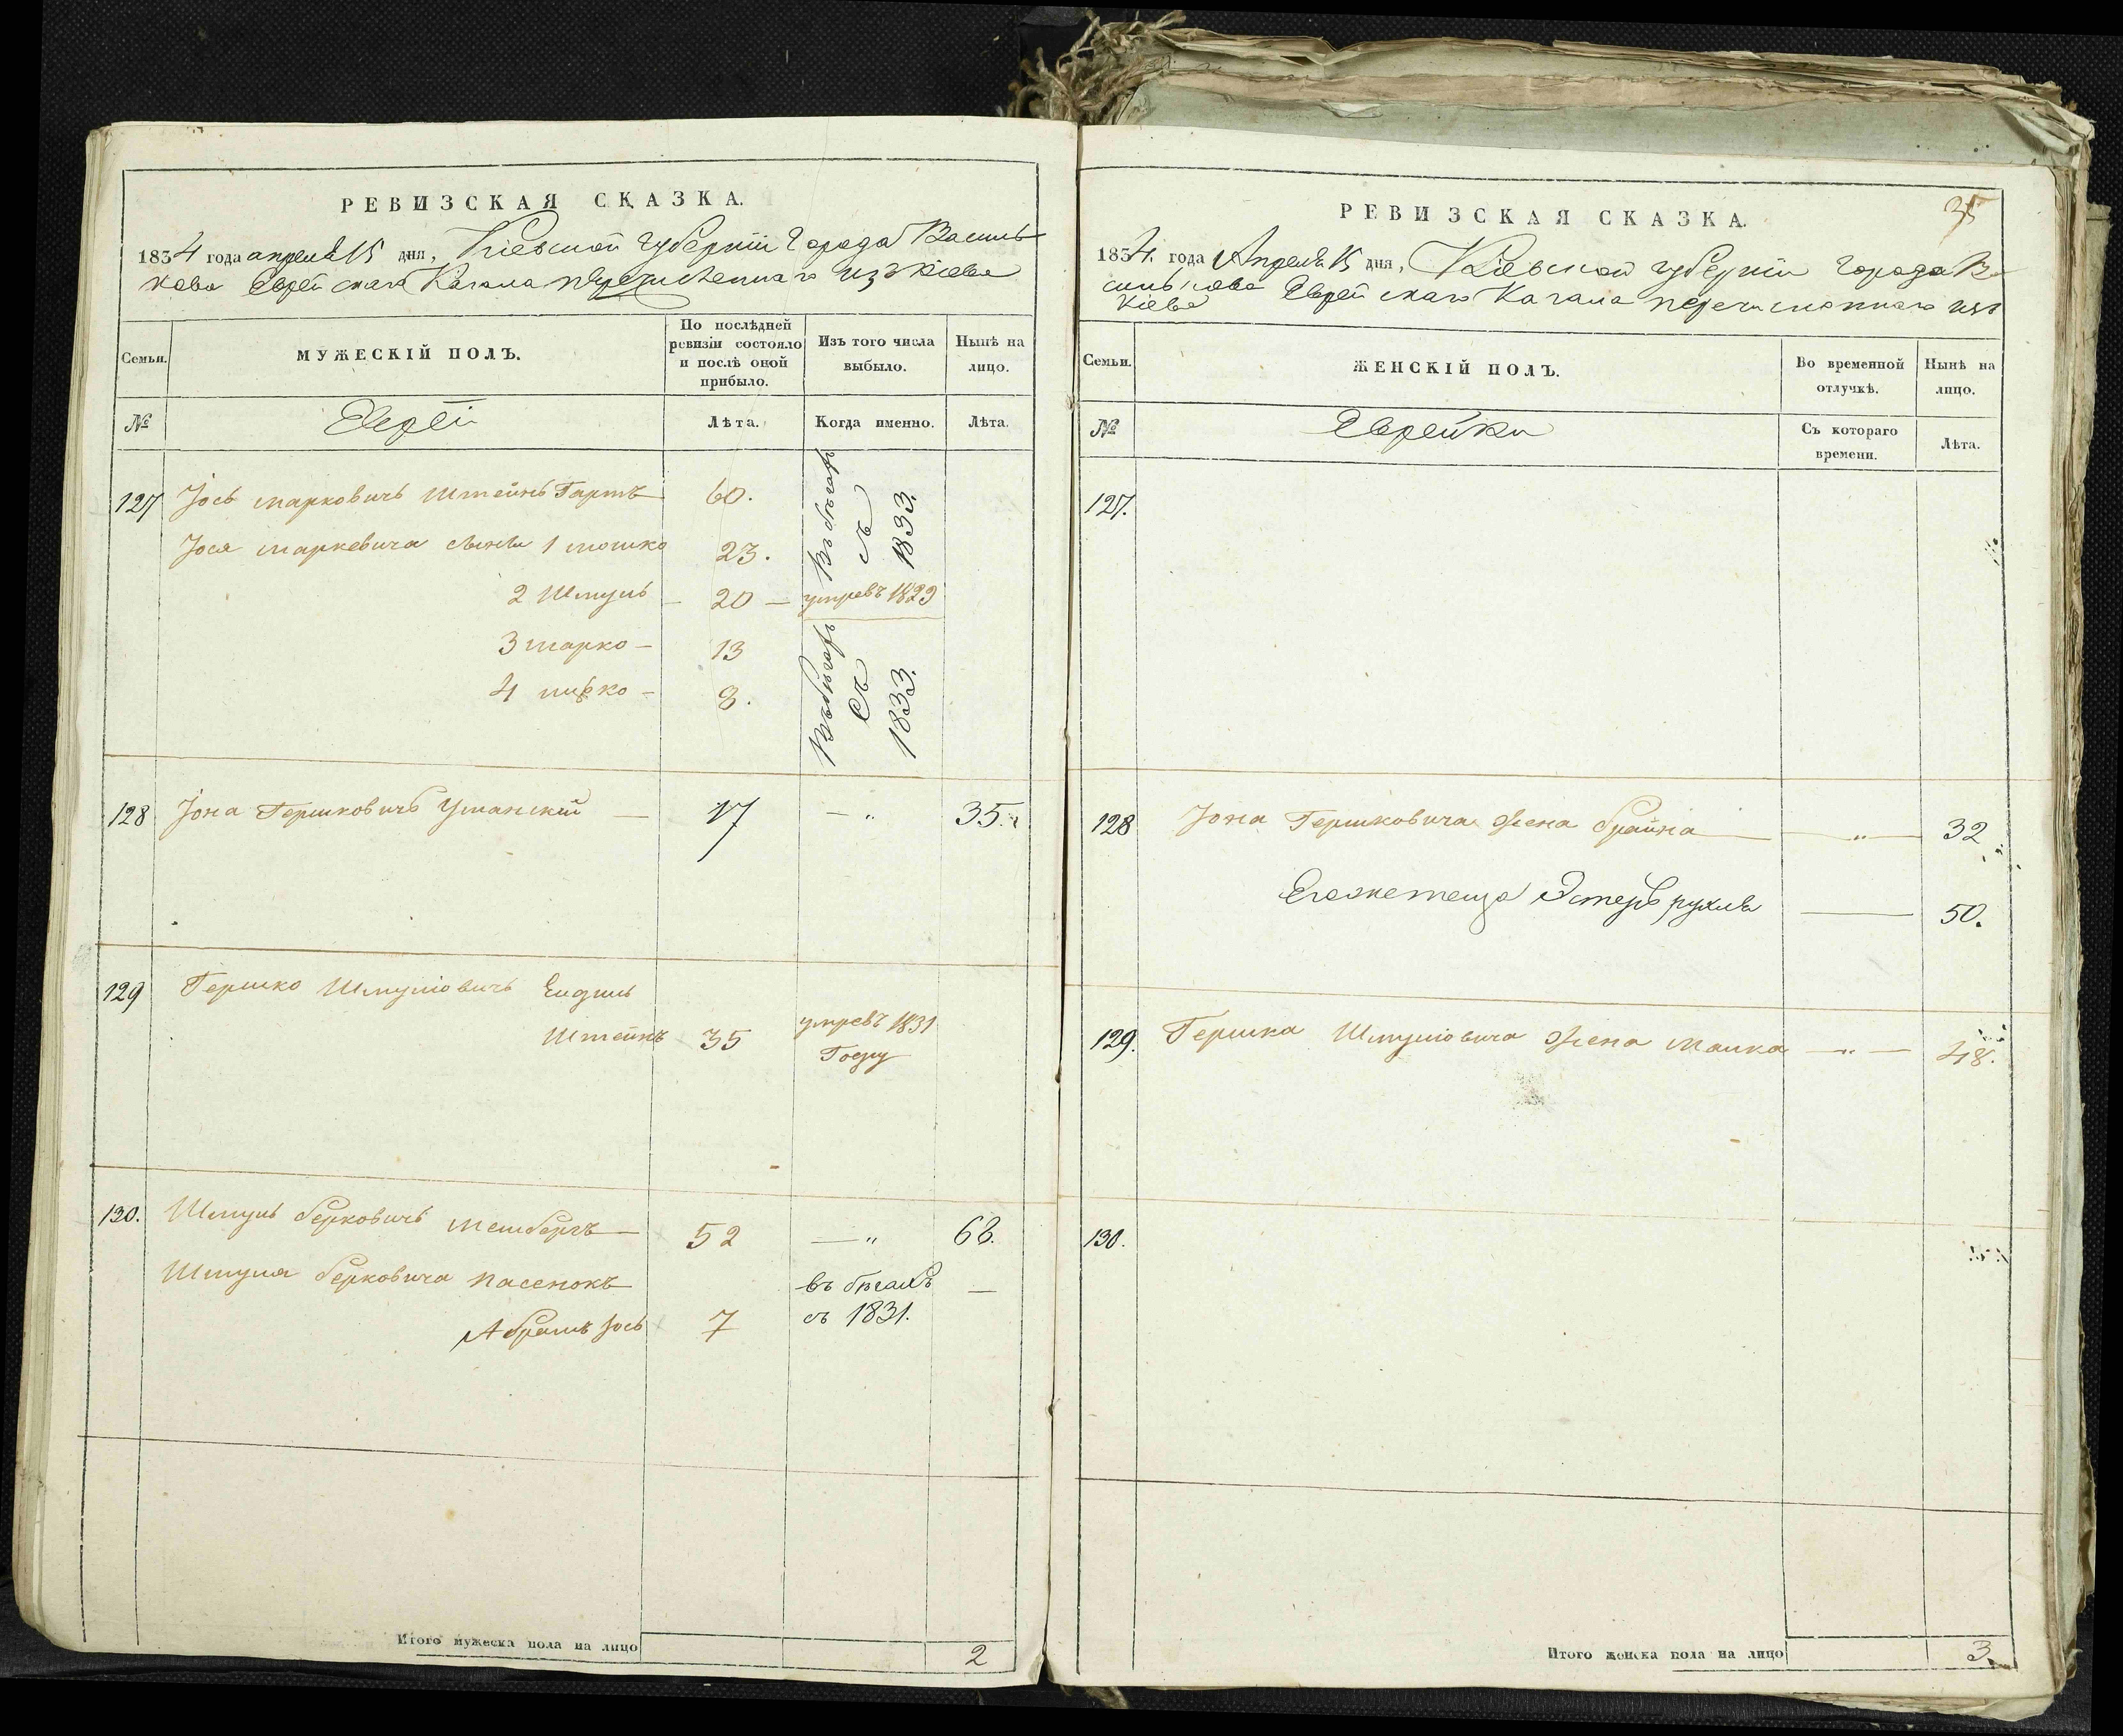 РЕВИЗСКАЯ СКАЗКА.
1834 года апреля 15 дня, Кіевской губерніи Города Василь
кова Еврейскаго Кагала перечисленнаго изъ Кіева
Семьи.
МУЖЕСКІЙ ПОЛЪ.
По послѣдней ревизіи состояло и послѣ оной прибыло.
Изъ того числа выбыло.
Нынѣ на лицо.
№
Евреи
Лѣта.
Когда именно.
Лѣта.
127 Іось Марковичь Штейнъ Гартъ 60.
Іося Маркевича сынъ 1 Мошко 23.
Въ бѣгахъ съ 1833.
2 Шмуль — 20 — умревъ 1829
3 Марко — 13
4 — 8.
Въ бѣгахъ съ 1833.
128 Іона Гершковичъ Уманскій — 17 — „ 35.
129 Гершко Шмуліовичъ
Штейнъ 35 умревъ 1831
Году
130. Шмуль Берковичъ 52 — „ 68.
Шмуля Берковича пасенокъ въ бѣгахъ —
Абрамъ Іось 7 съ 1831.
Итого мужеска пола на лицо 2
35
РЕВИЗСКАЯ СКАЗКА.
1834. года Апреля 15 дня, Кіевской губерніи Города Ва
силькова Еврейскаго Кагала перечисленнаго изъ
Кіева
Семьи.
ЖЕНСКІЙ ПОЛЪ.
Во временной отлучкѣ.
Нынѣ на лицо.
№
Еврейки
Съ котораго времени.
Лѣта.
127.
128 Іона Гершковича жена Брайна — „ — 32
Его же теща Эстеръ Рухля — 50.
129. Гершка Шмуліовича жена Малка — „ — 48.
130.
Итого женска пола на лицо 3.